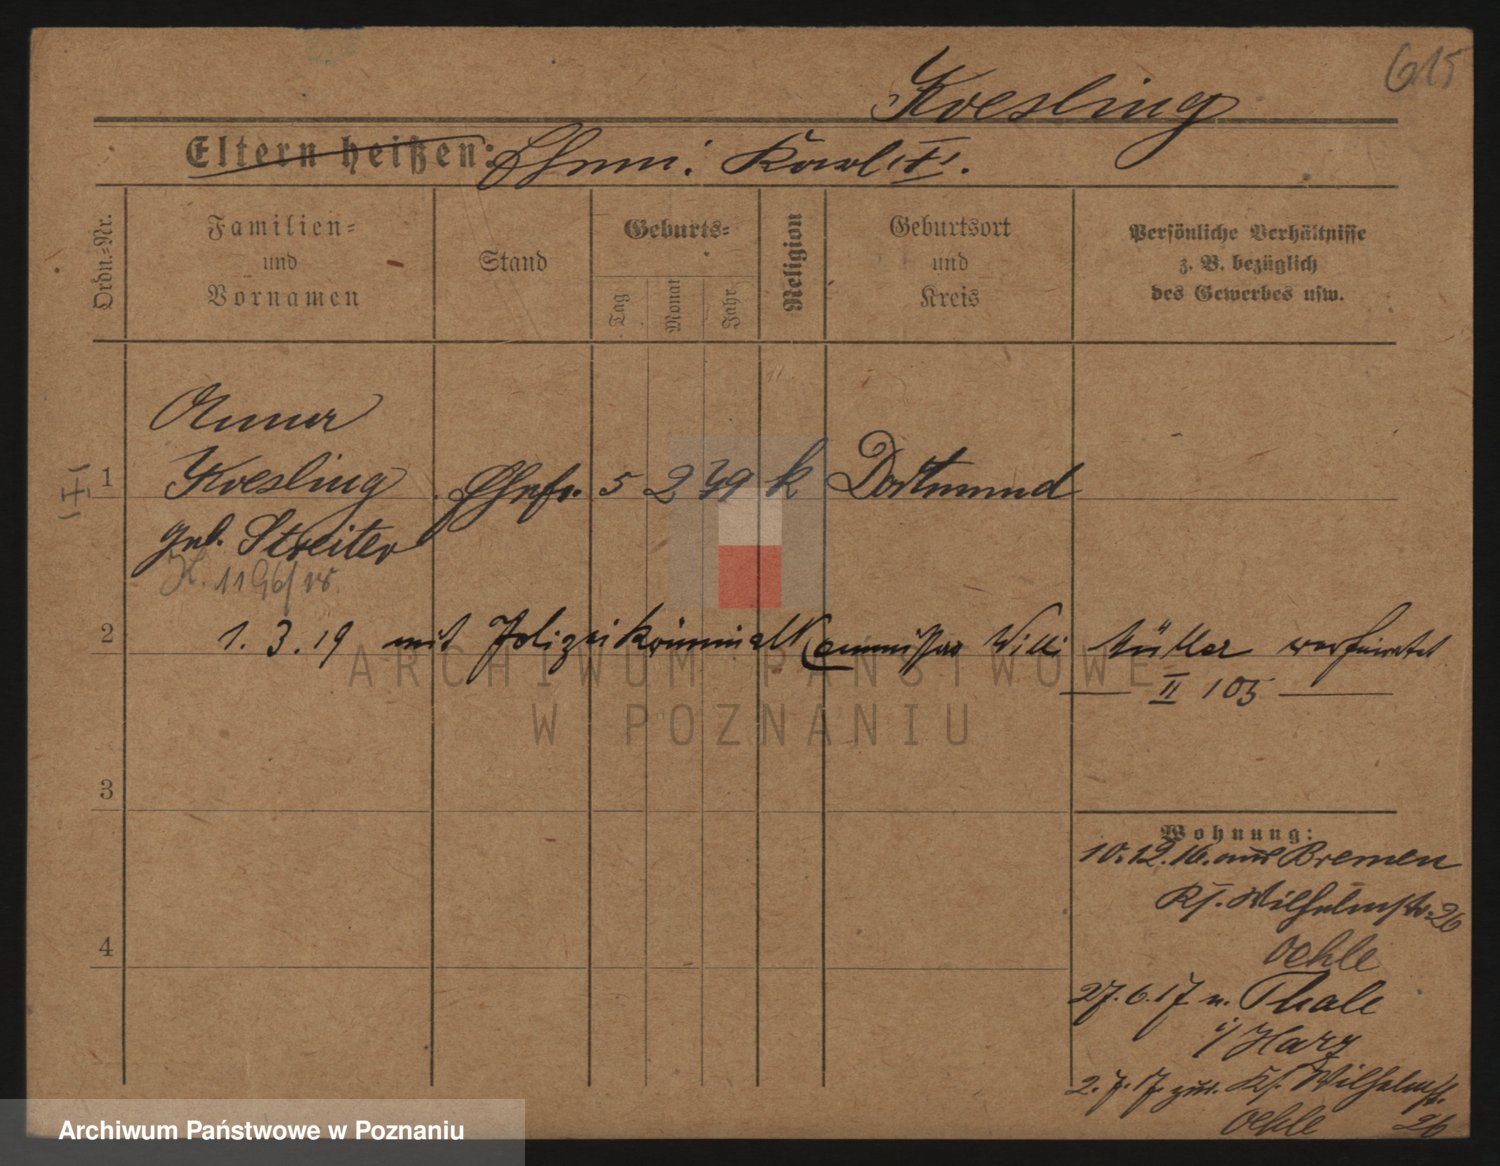 615
Koesling
Eltern heißen: Ehem: Karl (†).
Ordn.-Nr.
Familien-
und
Vornamen
Stand
Geburts-
Tag
Monat
Jahr
Religion
Geburtsort
und
Kreis
Persönliche Verhältnisse
z. B. bezüglich
des Gewerbes usw.
Anna
1 Koesling Ehefr. 5 2 79 k Dortmund
geb. Streiter
2 1.3.19 mit Polizeikriminal Commissar Willi Müller verheiratet
II 105
3
4
Wohnung:
10.12.16. aus Bremen
Ks. Wilhelmstr. 26
Oehle
27.6.17 n. Thale
i/Harz
2.7.17 zur. Ks. Wilhelmst.
Oehle 26
ARCHIWUM PAŃSTWOWE
W POZNANIU
Archiwum Państwowe w Poznaniu